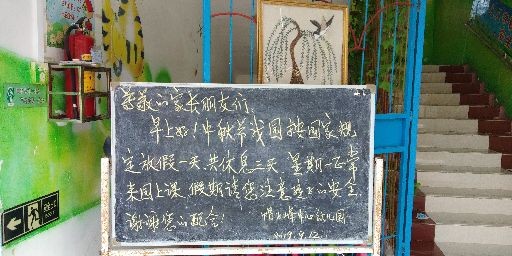 尊敬的家长朋友们
早上好!中秋节我国按国家规
定放假一天.共休息三天.星期一正常
来园上课.假期请您注意孩子的安全.
谢谢您的配合!
中心幼儿园
2019.9.12